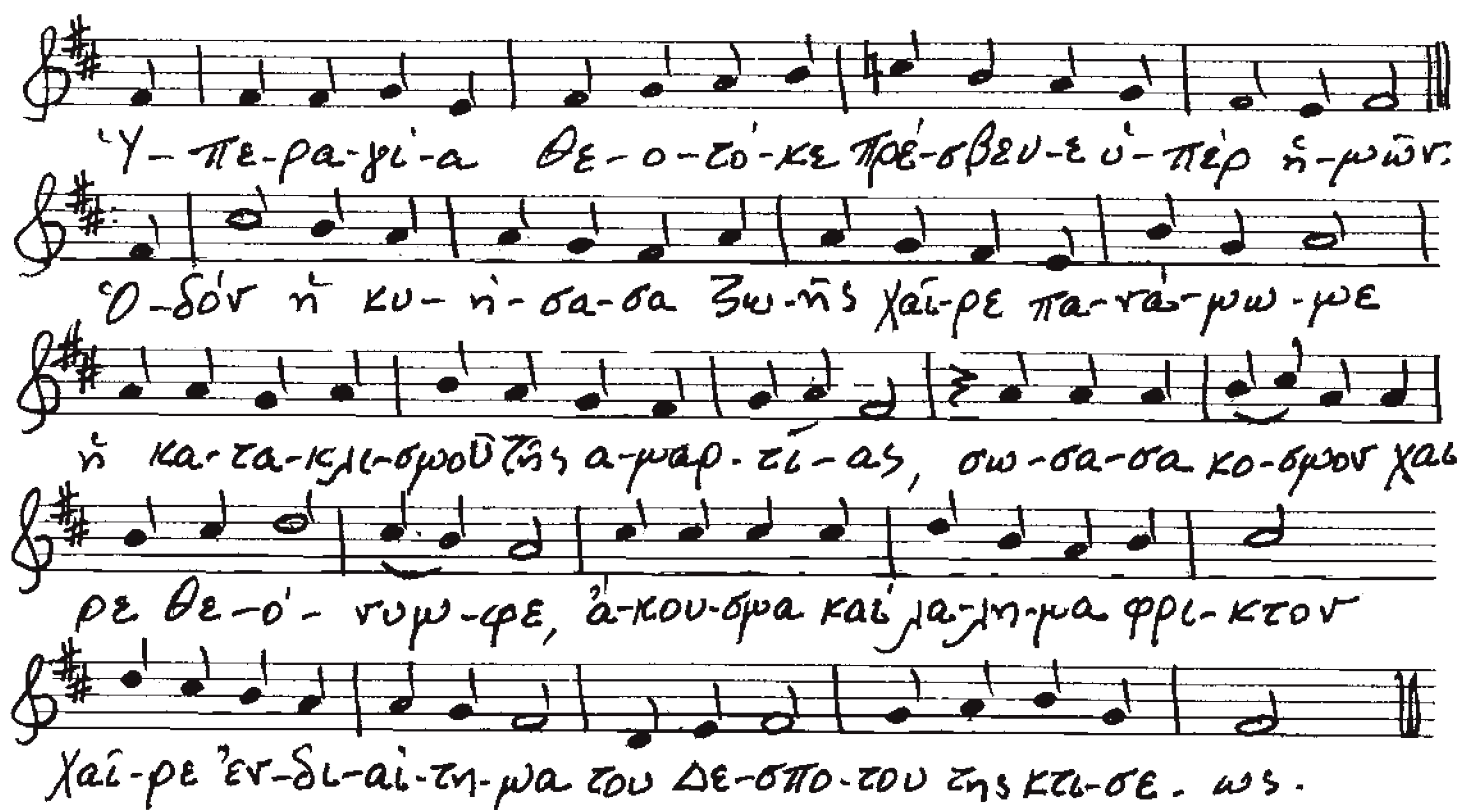 Ὑ-πε-ρα-γί-α Θε-ο-τό-κε πρέ-σβευ-ε ὑ-πὲρ ἡ-μῶν.
Ὁ-δόν ἡ κυ-ή-σα-σα ζω-ῆς χαῖ-ρε πα-νά-μω-με
ἡ κα-τα-κλι-σμοῦ τῆς α-μαρ-τί-ας, σω-σα-σα κο-σμον χαι
ρε θε-ό-νυμ-φε, ἄ-κου-σμα καί λα-λη-μα φρι-κτον
χαῖ-ρε ἐν-δι-αί-τη-μα του Δε-σπο-του της κτι-σε-ως.